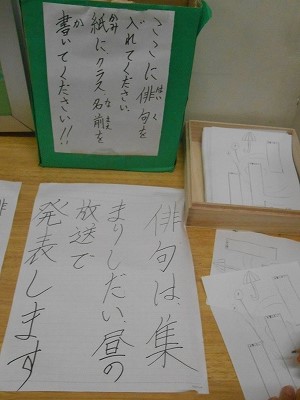 ここに俳句を
入れてください。
紙に、クラス、名前を
書いてください!!
俳句は、集
まりしだい、昼の
放送で
発表します